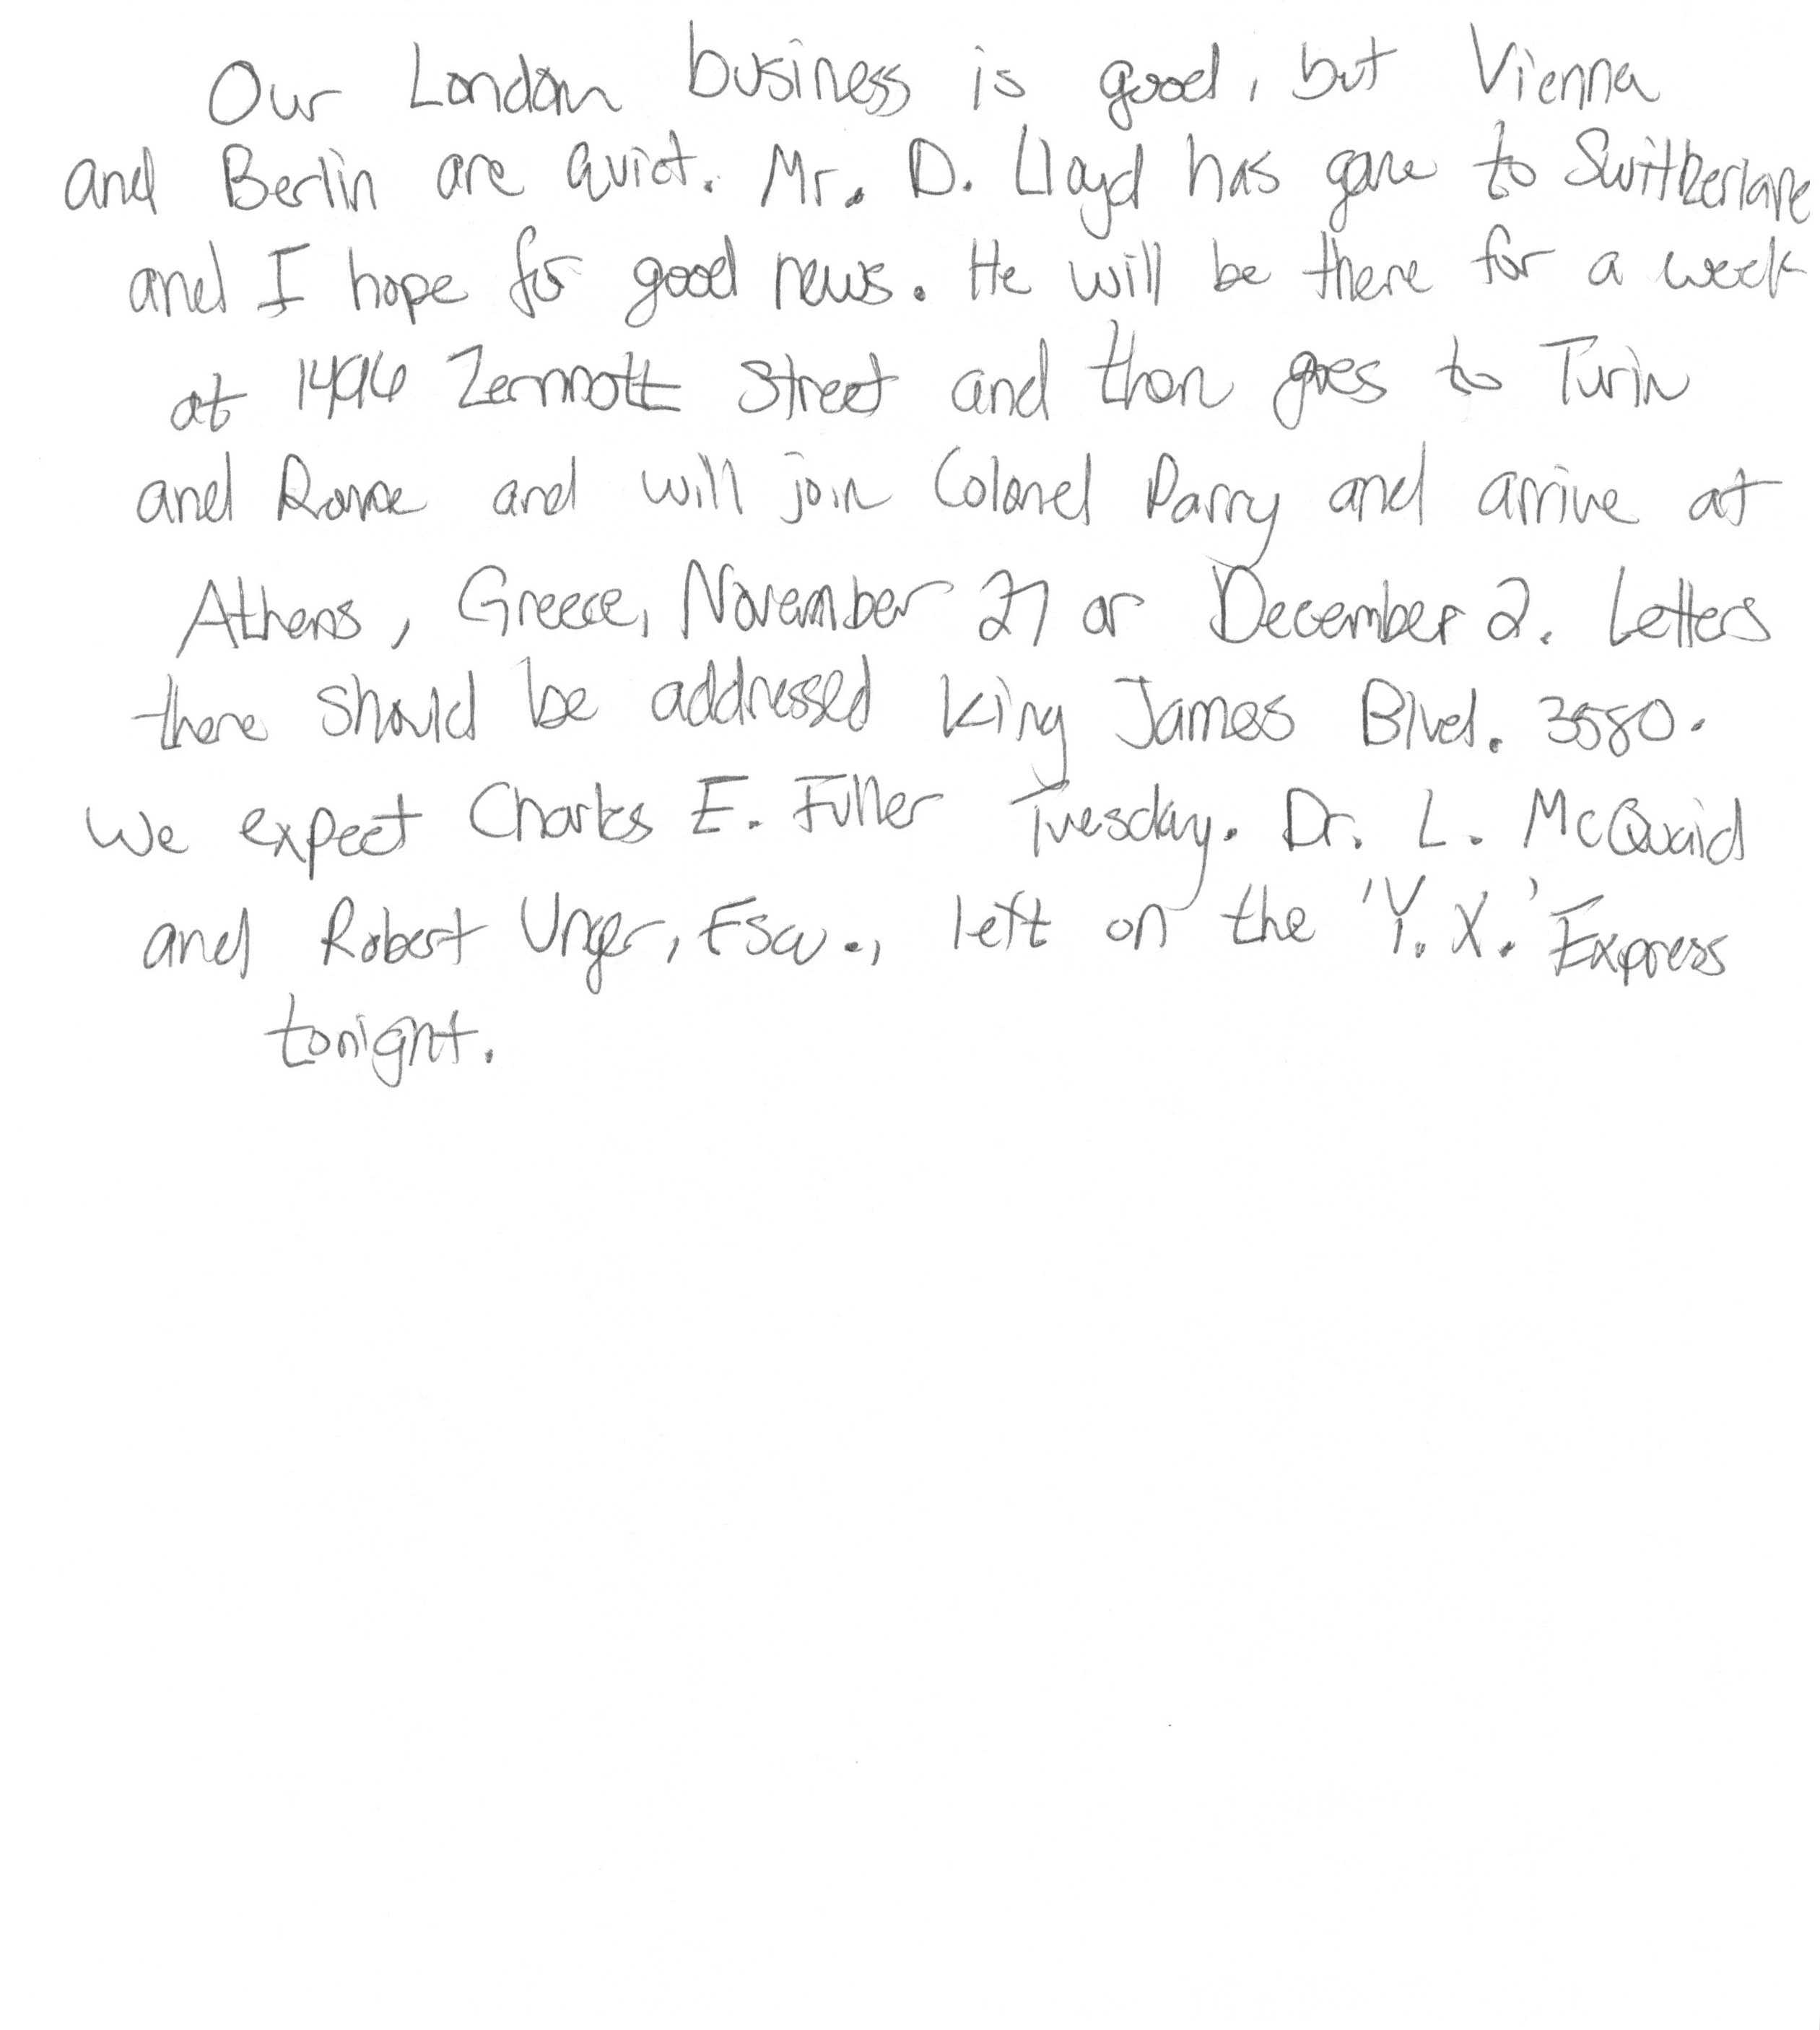 Our London business is good, but Vienna
and Berlin are quiet. Mr. D. Lloyd has gone to Switzerland
and I hope for good news. He will be there for a week
at 1496 Zermott Street and then goes to Turin
and Rome and will join Colonel Parry and arrive at
Athens, Greece, November 27 or December 2. Letters
there should be addressed King James Blvd. 3580.
We expect Charles E. Fuller Tuesday. Dr. L. McQuaid
and Robert Unger, Esq., left on the 'Y. X.' Express
tonight.